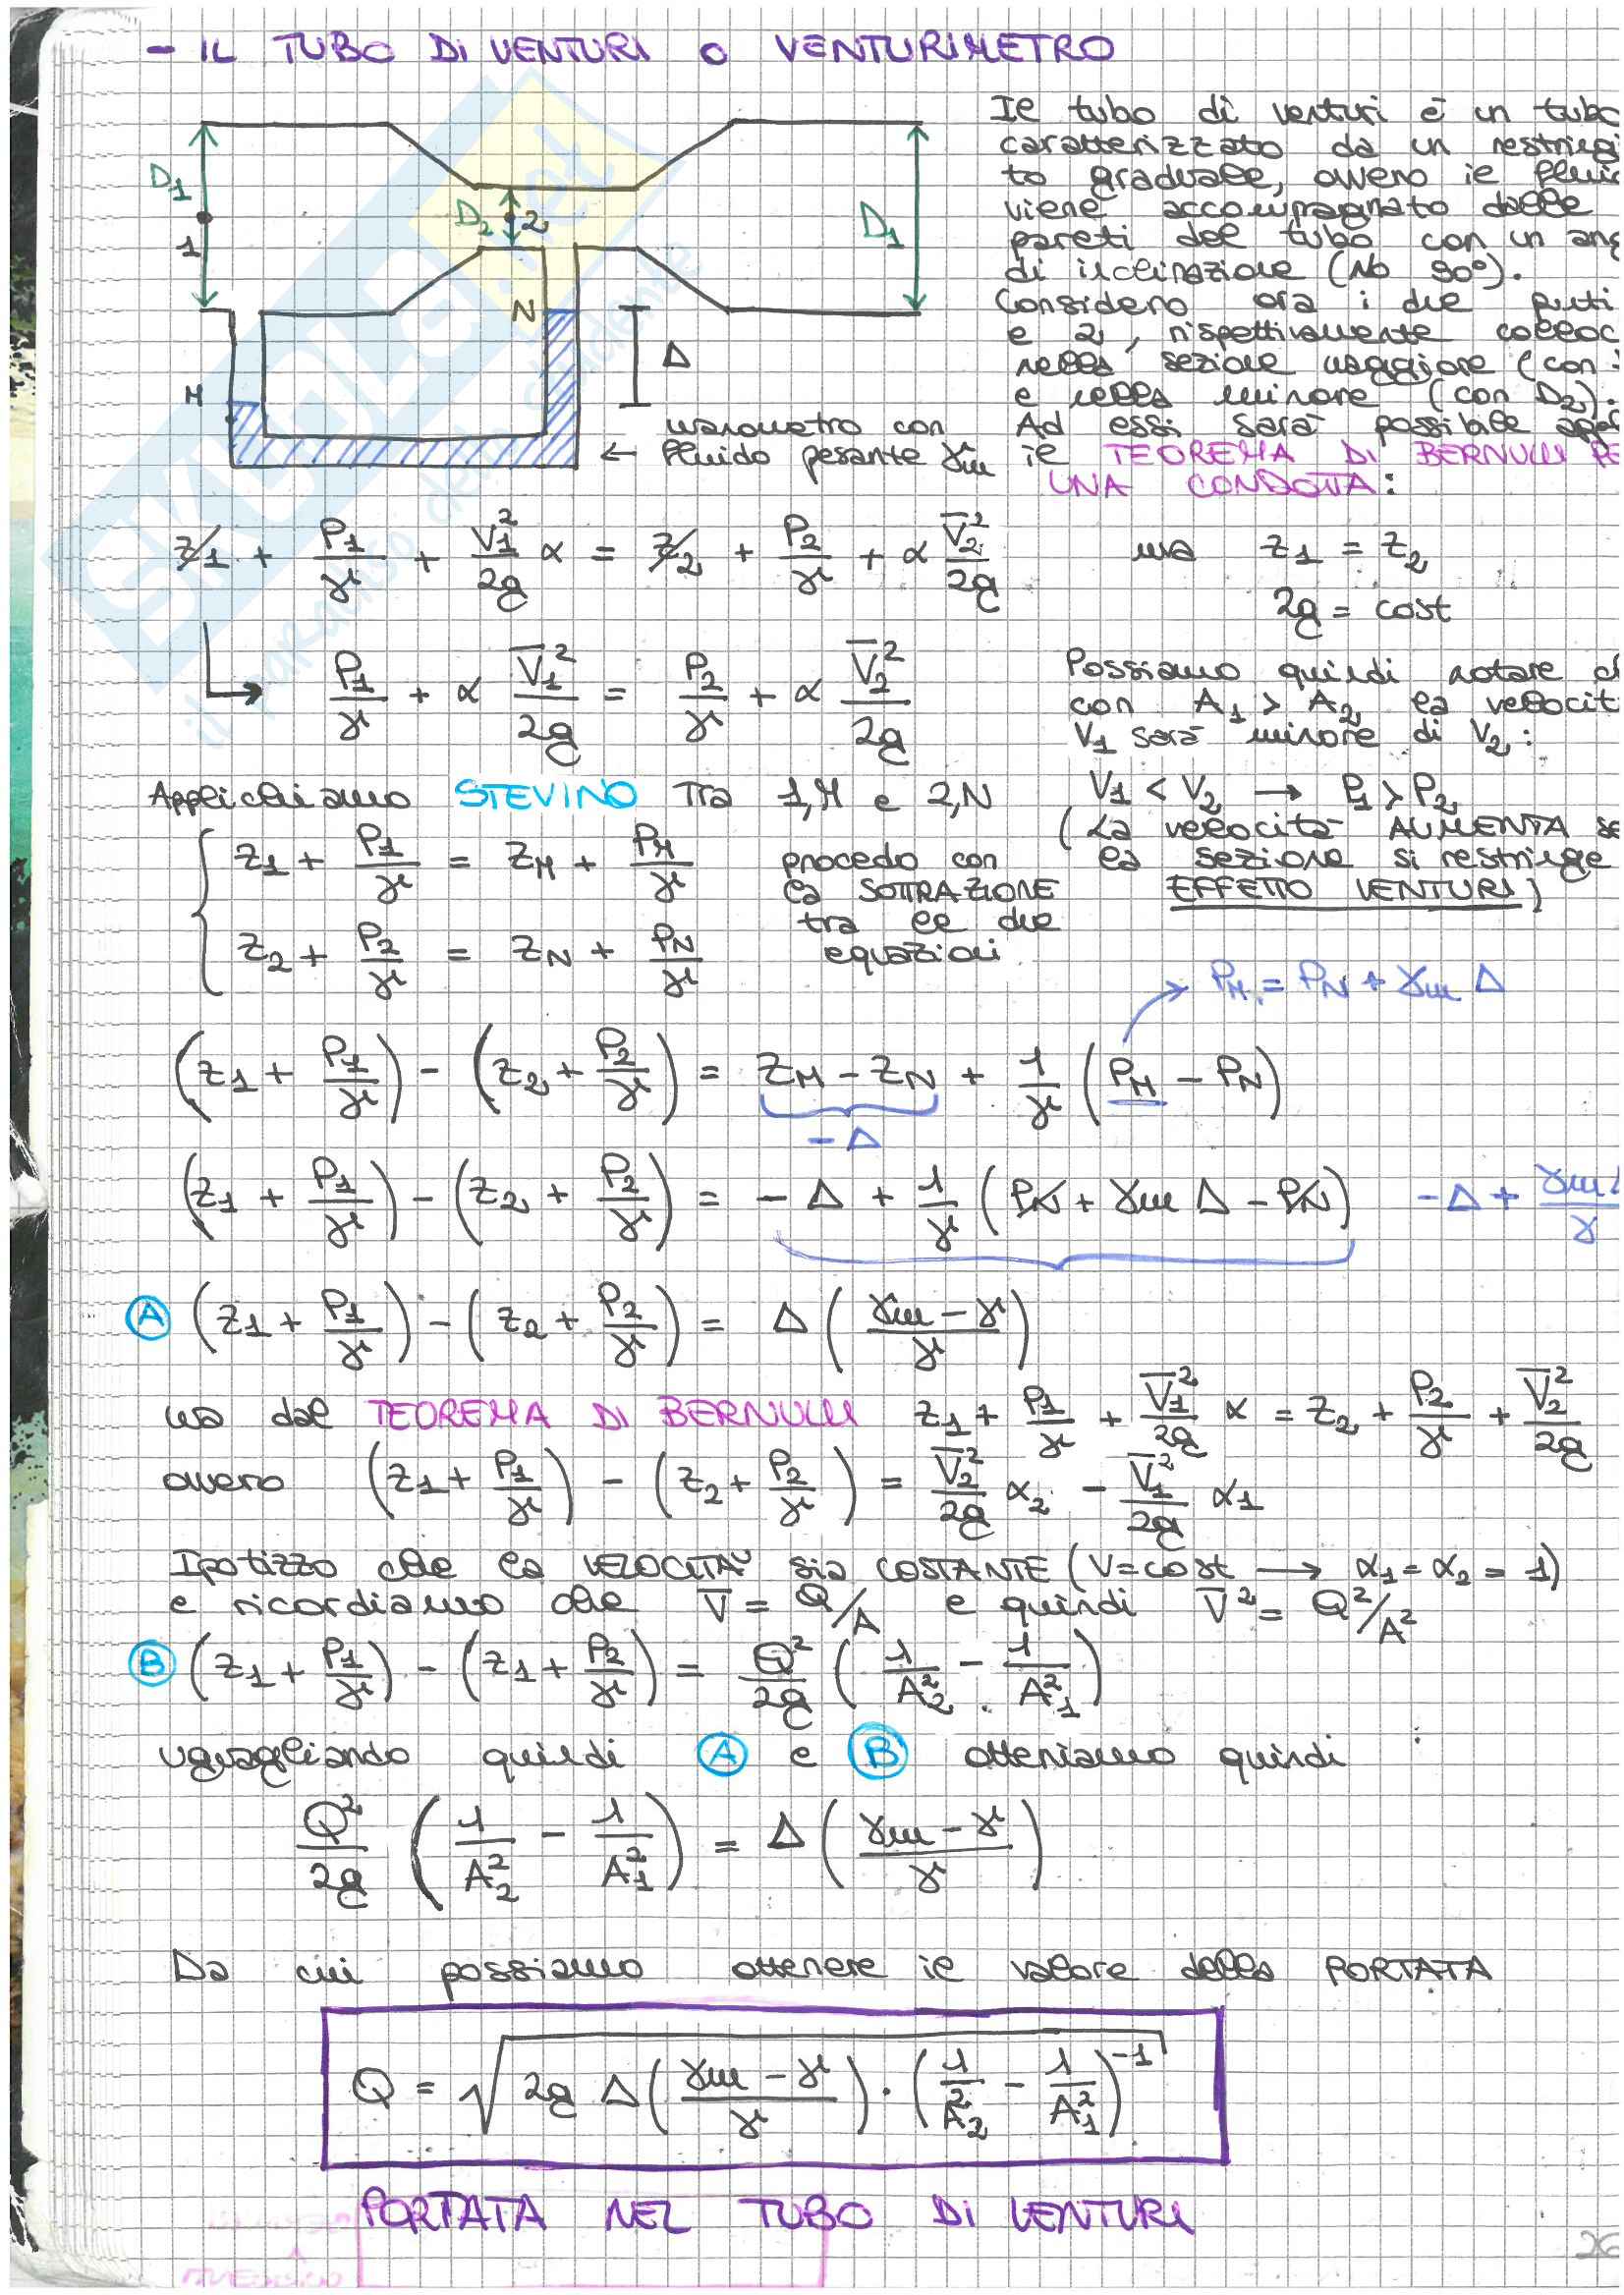 - IL TUBO DI VENTURI O VENTURIMETRO
Il tubo di venturi è un tubo
caratterizzato da un restringi
to graduale, ovvero il fluid
viene accompagnato dalle
pareti del tubo con un ang
di inclinazione (No 90°).
Considero ora i due punti
e 2, rispettivamente colloc
nella sezione maggiore (con
e nella minore (con D₂).
Ad essi sarà possibile app
il TEOREMA DI BERNULLI PE
UNA CONDOTTA:
D₁
1
D₂
2
D₁
N
M
Δ
manometro con
← fluido pesante γm
z₁ + P₁/γ + V₁²/2g α = z₂ + P₂/γ + α V̅₂²/2g
ma z₁ = z₂
2g = cost
P₁/γ + α V̅₁²/2g = P₂/γ + α V̅₂²/2g
Possiamo quindi notare ch
con A₁ > A₂ la velocit
V₁ sarà minore di V₂:
V₁ < V₂ → P₁ > P₂
(La velocità AUMENTA se
la sezione si restringe
EFFETTO VENTURI)
Applichiamo STEVINO tra 1,M e 2,N
z₁ + P₁/γ = zM + PM/γ
z₂ + P₂/γ = zN + PN/γ
procedo con
la SOTTRAZIONE
tra le due
equazioni
→ PM = PN + γm Δ
(z₁ + P₁/γ) - (z₂ + P₂/γ) = zM - zN + 1/γ (PM - PN)
- Δ
(z₁ + P₁/γ) - (z₂ + P₂/γ) = - Δ + 1/γ (PN + γm Δ - PN) -Δ + γm Δ/γ
A (z₁ + P₁/γ) - (z₂ + P₂/γ) = Δ (γm - γ/γ)
ma dal TEOREMA DI BERNULLI z₁ + P₁/γ + V̅₁²/2g α = z₂ + P₂/γ + V̅₂²/2g
ovvero (z₁ + P₁/γ) - (z₂ + P₂/γ) = V̅₂²/2g α₂ - V̅₁²/2g α₁
Ipotizzo che la VELOCITÀ sia COSTANTE (V=cost → α₁ = α₂ = 1)
e ricordiamo che V̅ = Q/A e quindi V̅² = Q²/A²
B (z₁ + P₁/γ) - (z₁ + P₂/γ) = Q²/2g (1/A₂² - 1/A₁²)
uguagliando quindi A e B otteniamo quindi :
Q²/2g (1/A₂² - 1/A₁²) = Δ (γm - γ/γ)
Da cui possiamo ottenere il valore della PORTATA
Q = √2g Δ (γm - γ/γ) · (1/A₂² - 1/A₁²)⁻¹
PORTATA NEL TUBO DI VENTURI
26